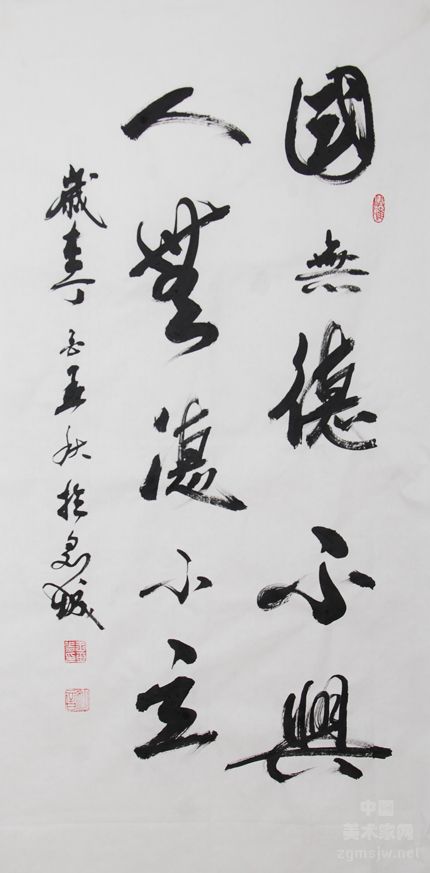 國無德不興
人無德不立
歲在丁酉孟秋於
中国
美术家网
zgmsjw.net